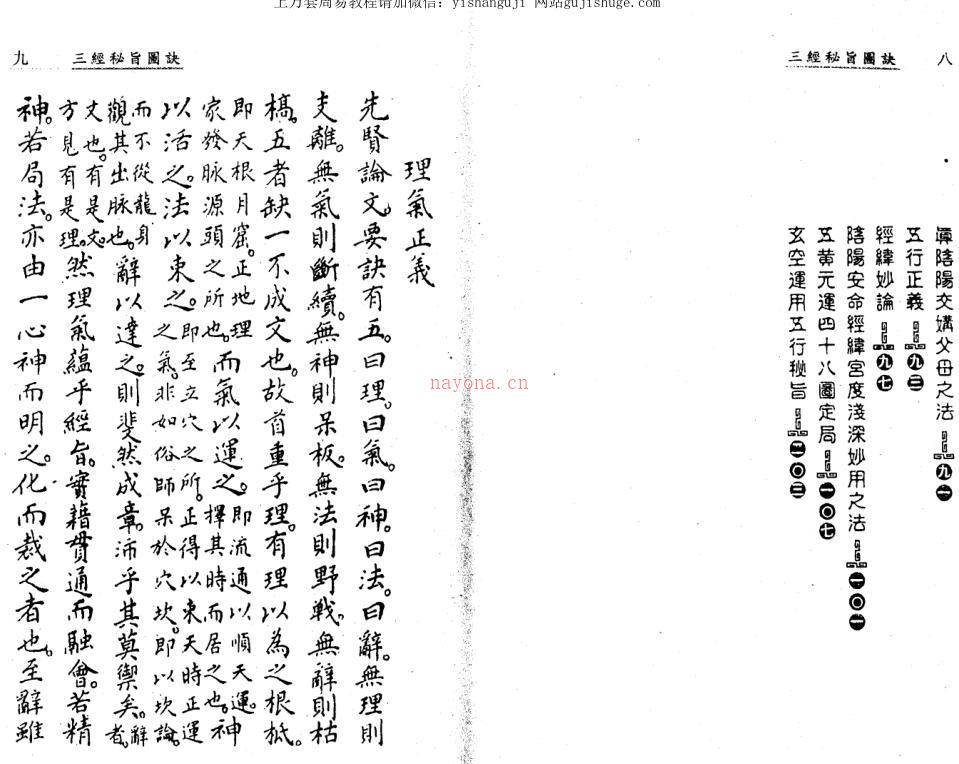 上万套周易教程请加微信：yishanguji 网站gujishuge.com
三經秘旨圖訣 八
眞陰陽交媾父母之法 九一
五行正義 九三
經緯妙論 九七
陰陽安命經緯宮度淺深妙用之法 一〇一
五黄元運四十八圖定局 一〇七
玄空運用五行秘旨 二〇三
三經秘旨圖訣 九
理氣正義
先賢論文。要訣有五。曰理。曰氣。曰神。曰法。曰辭。無理則
支離。無氣則斷續。無神則呆板。無法則野戰。無辭則枯
槁。五者缺一不成文也。故首重乎理。有理以為之根柢。
即天根月窟。正地理家發脉源頭之所也。而氣以運之。即流通以順天運。擇其時而居之也。神
以活之。法以束之。即至立穴之所。正得以束天時正運之氣。非如俗師呆於穴坎。即以坎論。
而不從龍身觀其出脉也。辭以達之。則斐然成章。沛乎其莫禦矣。辭者。
文也。有是文。方見有是理。然理氣蘊乎經旨。實藉貫通而融會。若精
神。若局法。亦由一心神而明之。化而裁之者也。至辭雖
nayona.cn